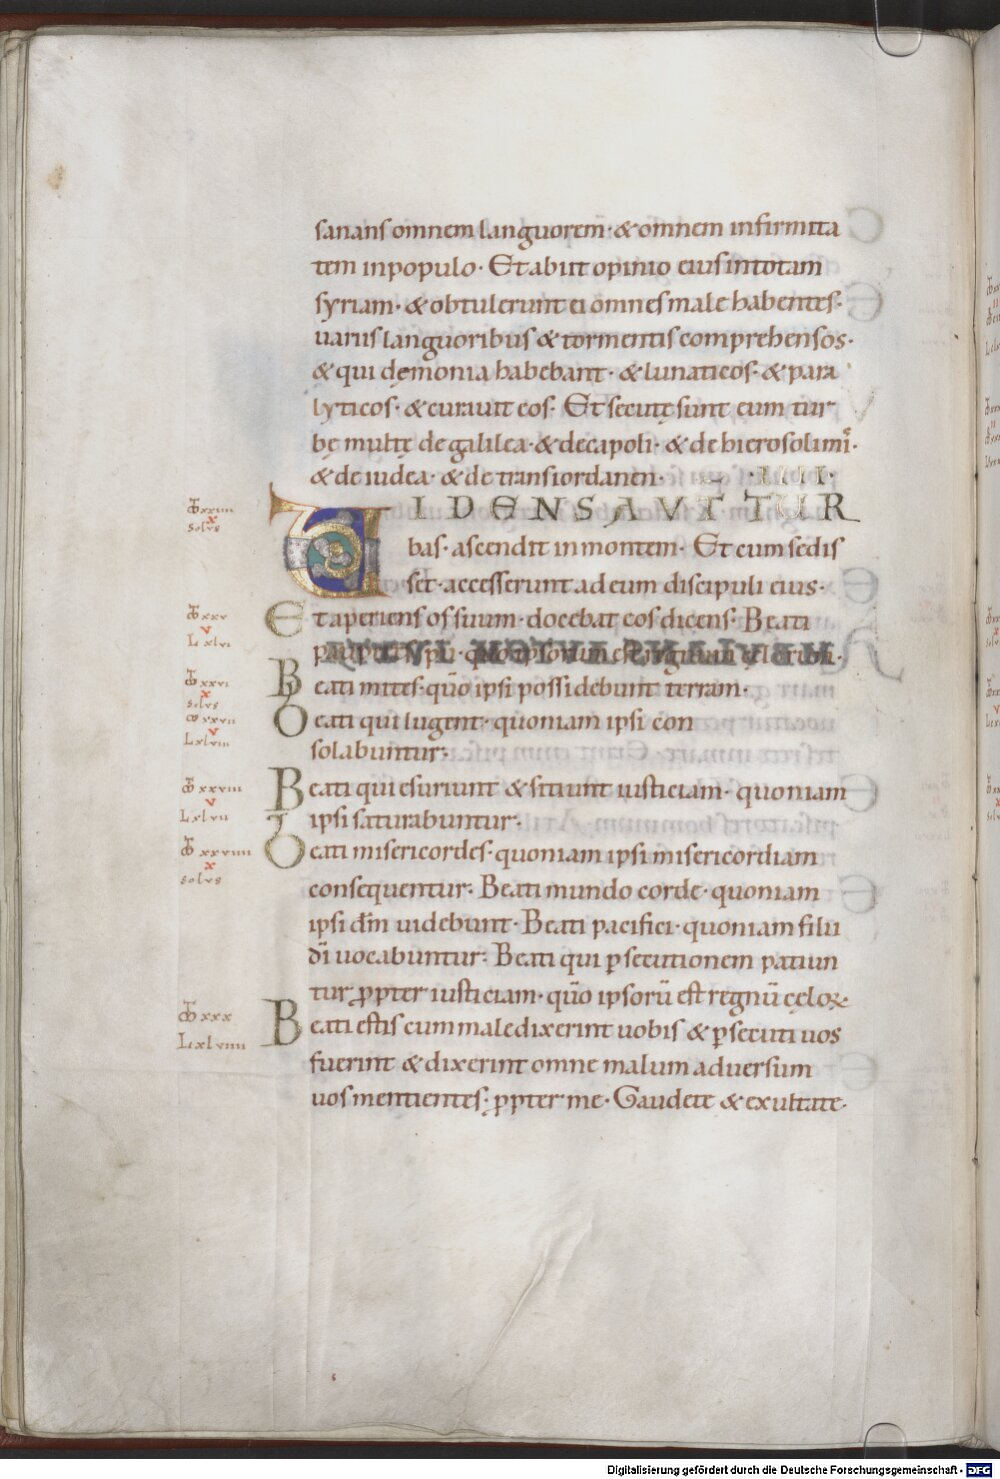 sanans omnem languorem· & omnem infirmita
tem in populo· Et abiit opinio eius in totam
syriam· & obtulerunt ei omnes male habentes·
uariis languoribus & tormentis comprehensos·
& qui demonia habebant· & lunaticos· & para
lyticos· & curauit eos· Et secutę sunt eum tur
bę multę de galilea· & decapoli· & de hierosolimis·
& de iudea· & de transiordanen· ·IIII·
UIDENS AUT TUR
bas· ascendit in montem· Et cum sedis
set· accesserunt ad eum discipuli eius·
Et aperiens os suum· docebat eos dicens· Beati
pauperes spu· quo ipsorum est regnum
Beati mites· quō ipsi possidebunt terram·
Beati qui lugent· quoniam ipsi con
solabuntur·
Beati qui esuriunt & sitiunt iusticiam· quoniam
ipsi saturabuntur·
Beati misericordes· quoniam ipsi misericordiam
consequentur· Beati mundo corde· quoniam
ipsi dm̄ uidebunt· Beati pacifici· quoniam filii
dī uocabuntur· Beati qui ꝑsecutionem patiun
tur ꝓpter iusticiam· quō ipsorū est regnū cęloꝝ·
Beati estis cum maledixerint uobis & ꝑsecuti uos
fuerint & dixerint omne malum aduersum
uos mentientes· ꝓpter me· Gaudete & exultate·
xxiiii
x
solus
xxv
v
L xlvi
xxvi
x
solus
xxvii
v
L xlviii
xxviii
v
L xlvii
xxviiii
x
solus
xxx
L xlviiii
Digitalisierung gefördert durch die Deutsche Forschungsgemeinschaft - DFG